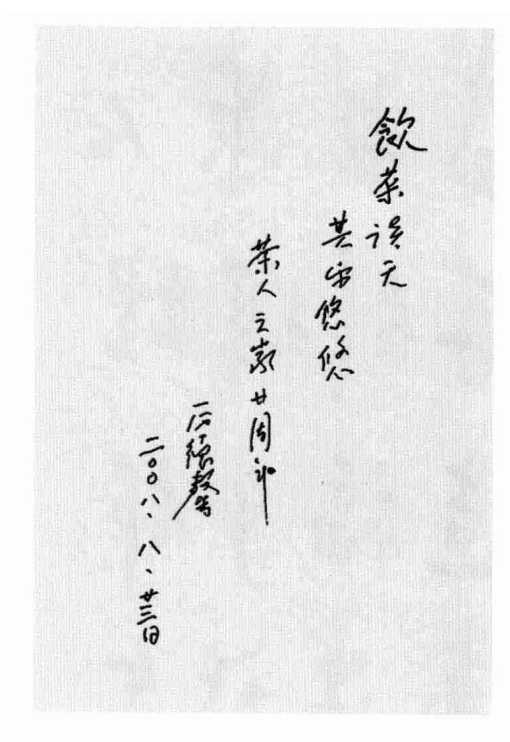 飲茶談天
其樂悠悠
茶人之家廿周年
二〇〇八、八、廿三日